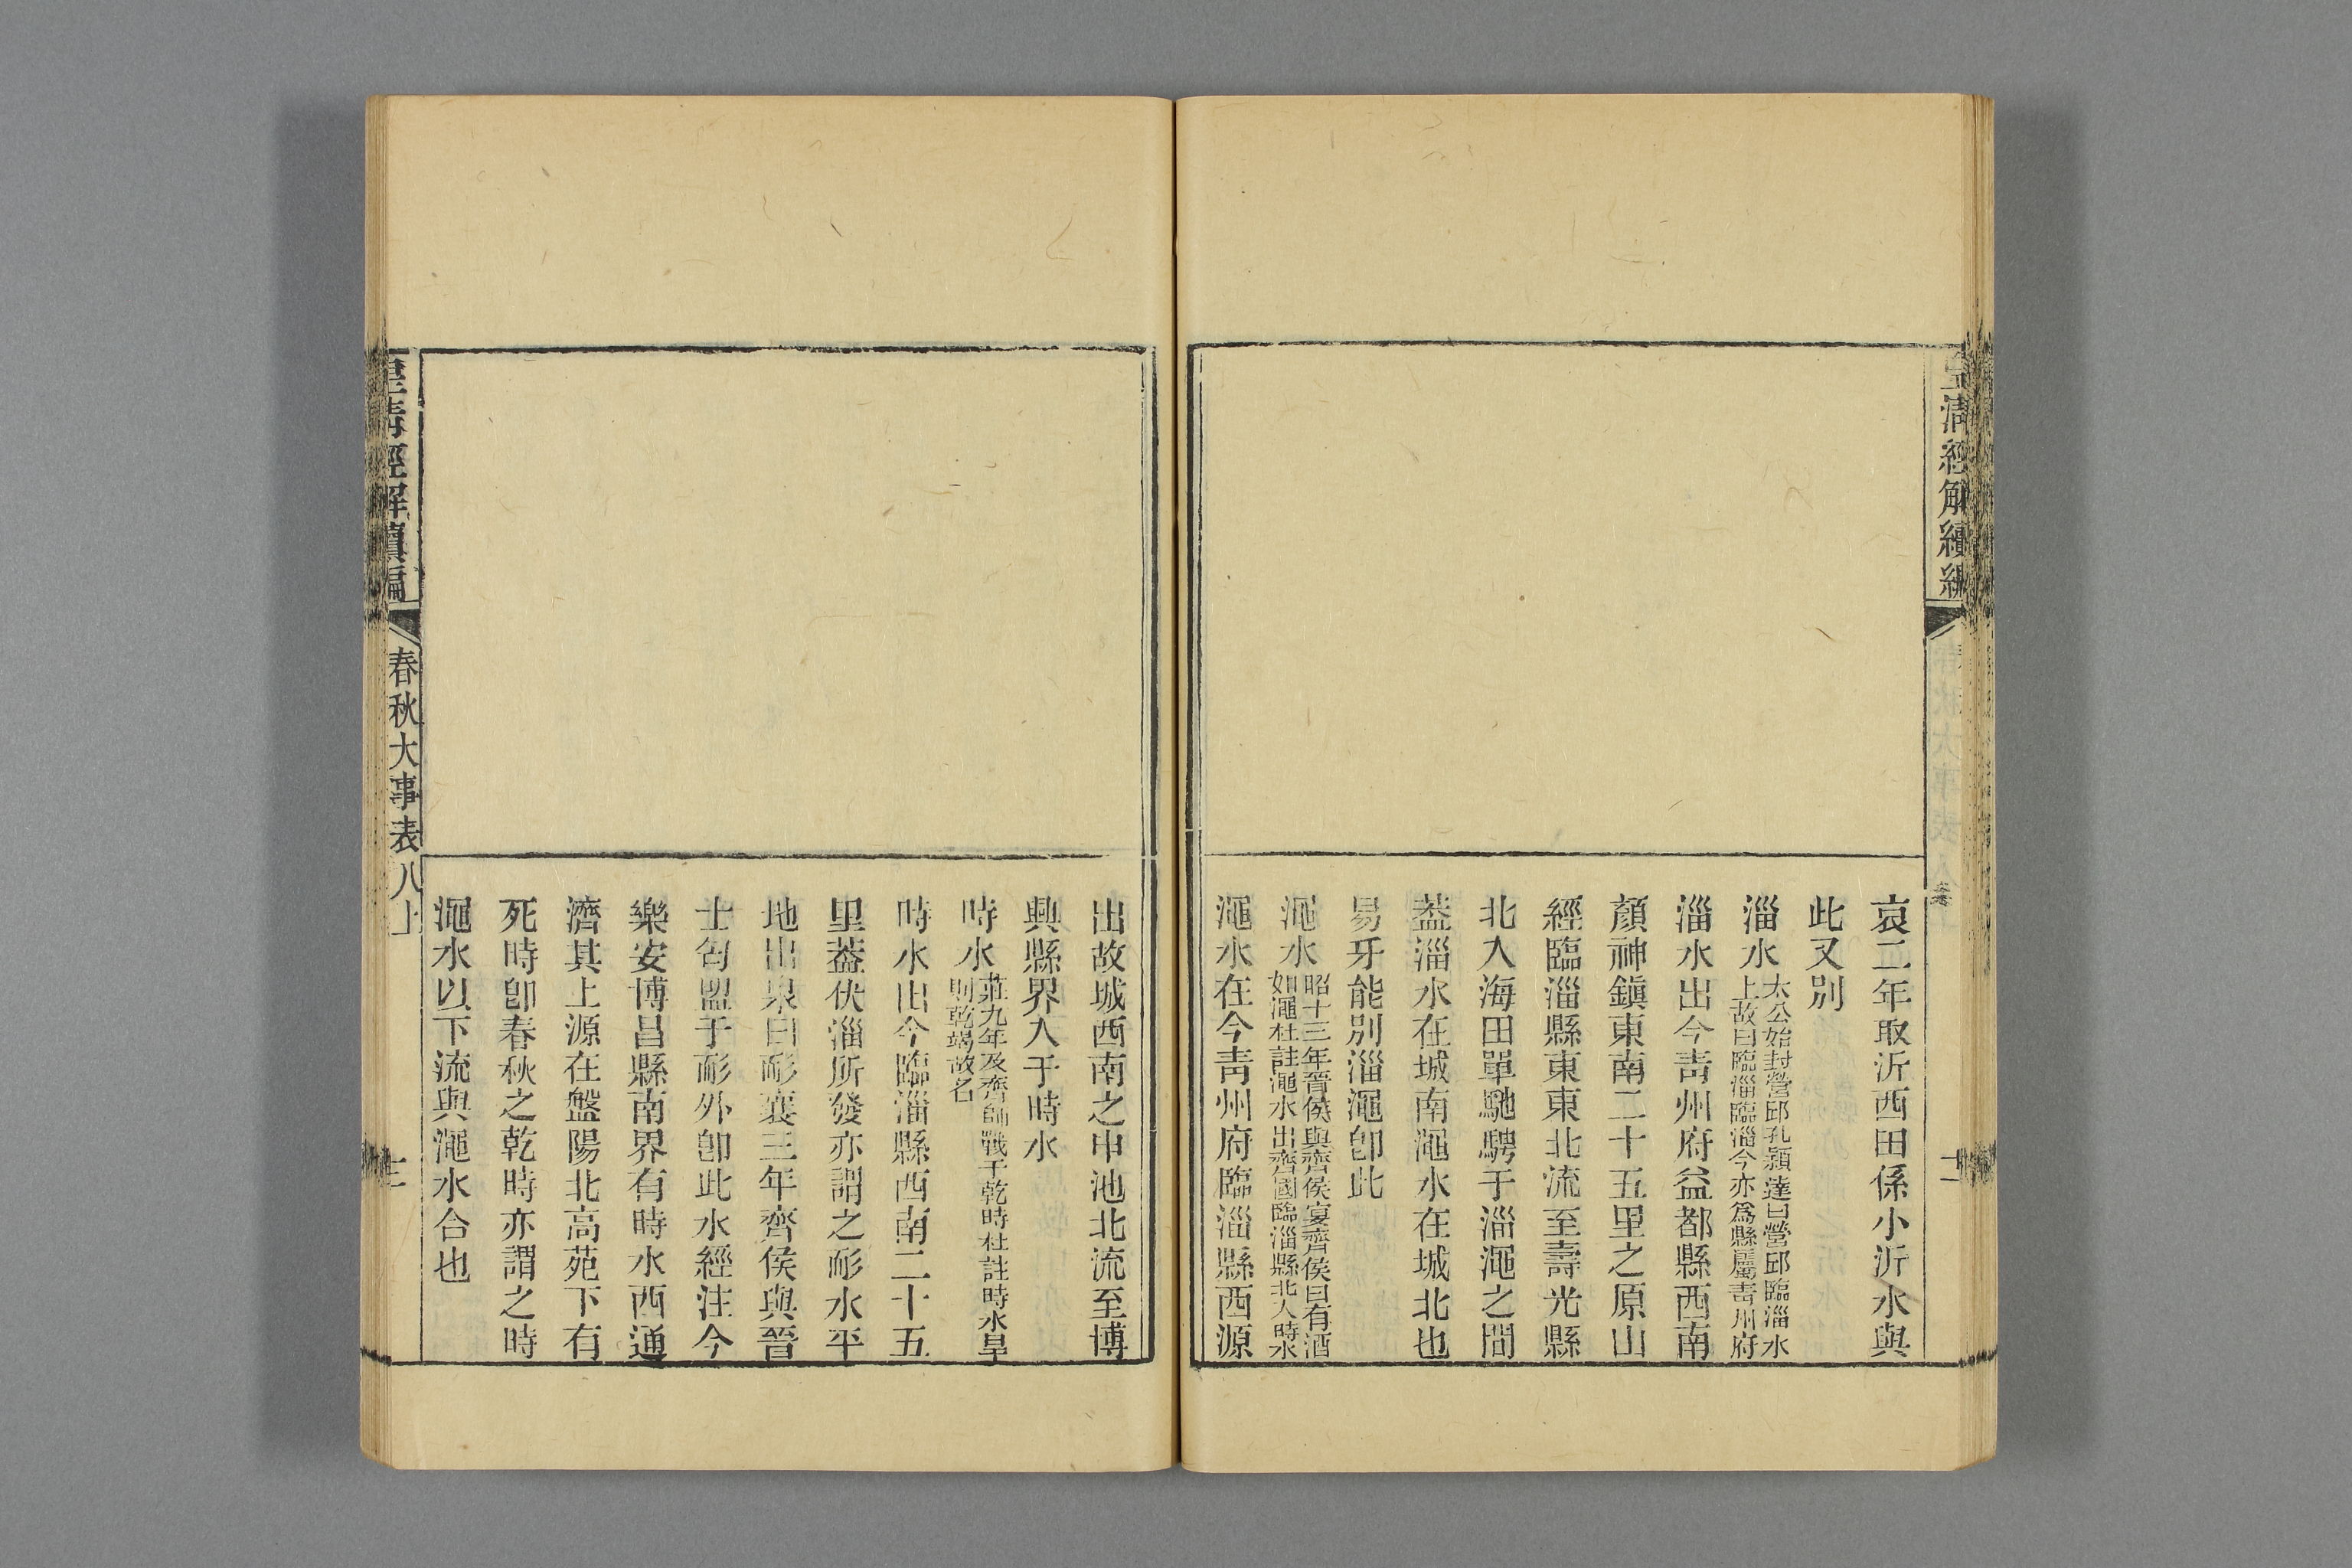 皇清經解續編
哀二年取沂西田係小沂水與
此又別
淄水太公始封營邱孔穎達曰營邱臨淄水
上故曰臨淄臨淄今亦爲縣屬靑州府
淄水出今靑州府益都縣西南
顏神鎭東南二十五里之原山
經臨淄縣東東北流至壽光縣
北入海田單馳騁于淄澠之間
葢淄水在城南澠水在城北也
易牙能別淄澠卽此
澠水昭十三年晉侯與齊侯宴齊侯曰有酒
如澠杜註澠水出齊國臨淄縣北入時水
澠水在今靑州府臨淄縣西源
出故城西南之申池北流至博
興縣界入于時水
時水莊九年及齊師戰于乾時杜註時水旱
則乾竭故名
時水出今臨淄縣西南二十五
里葢伏淄所發亦謂之耏水平
地出泉曰耏襄三年齊侯與晉
士匄盟于耏外卽此水經注今
樂安博昌縣南界有時水西通
濟其上源在盤陽北高苑下有
死時卽春秋之乾時亦謂之時
澠水以下流與澠水合也
皇清經解續編
春秋大事表八上